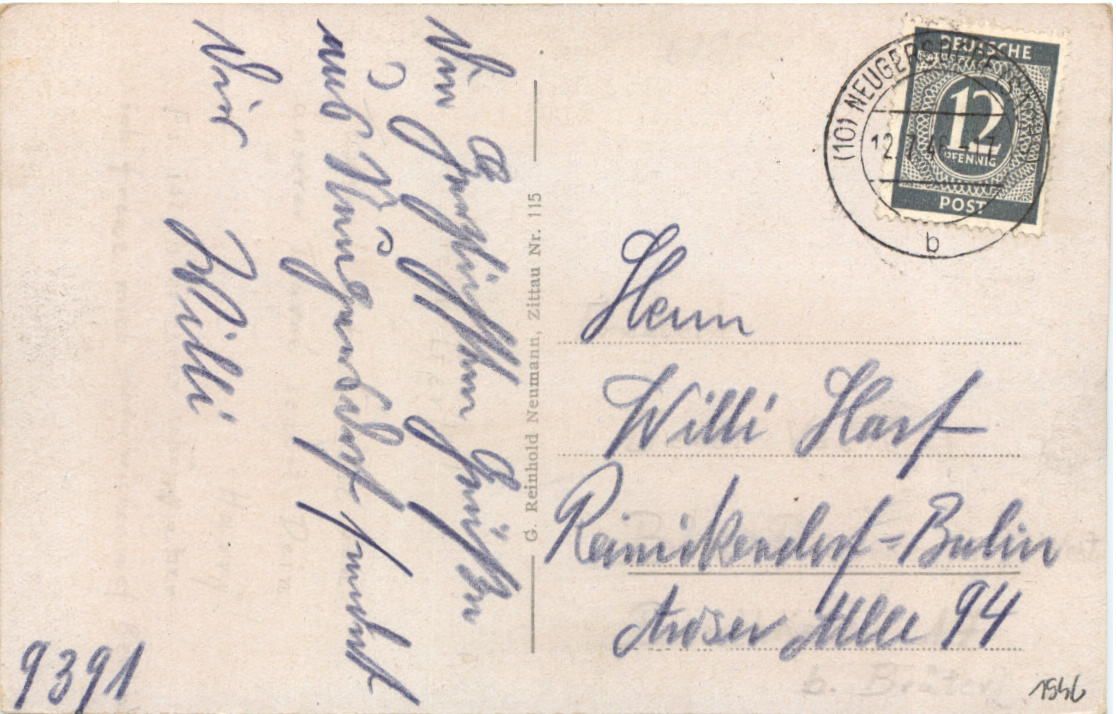 Die herzlichsten Grüße
aus Neugersdorf sendet
Dir
Willi
G. Reinhold Neumann, Zittau Nr. 115
DEUTSCHE
12
PFENNIG
POST
(10) NEUGERS
12. 7. 46. 17
b
Herrn
Willi Harf
Reinickendorf-Berlin
Aroser Allee 94
9391
1946